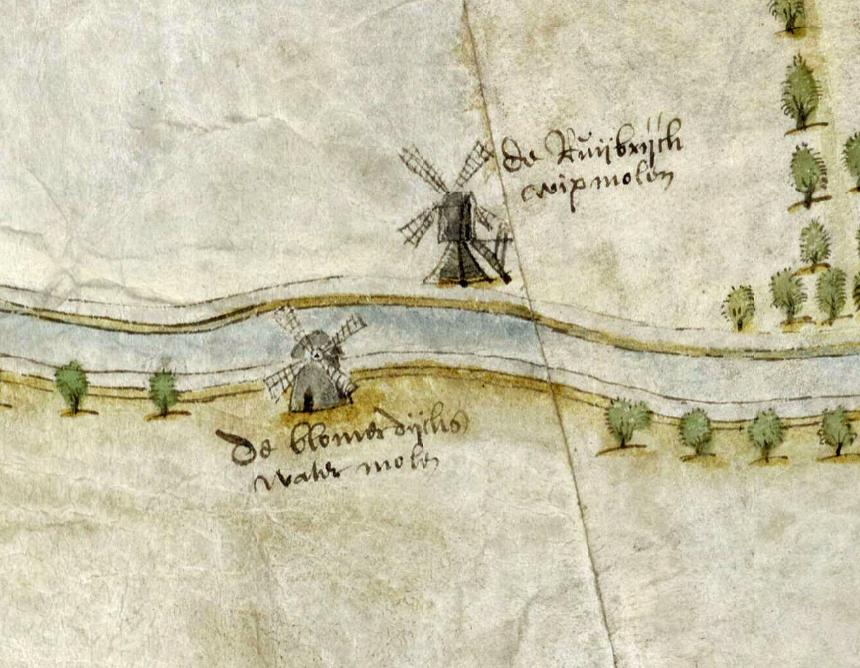 de Ruijbrijch
wipmolen
De blomerdijcks
water molen